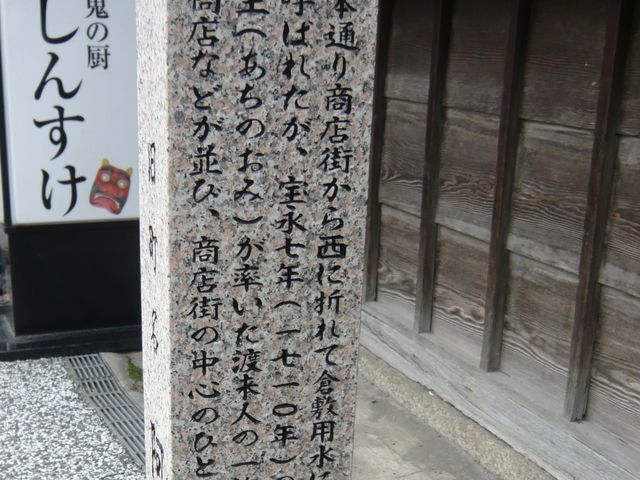 鬼の厨
しんすけ
本通り商店街から西に折れて倉敷用水に
呼ばれたが、宝永七年(一七一〇年)の
主(あちのおみ)が率いた渡来人の一
商店などが並び、商店街の中心のひと